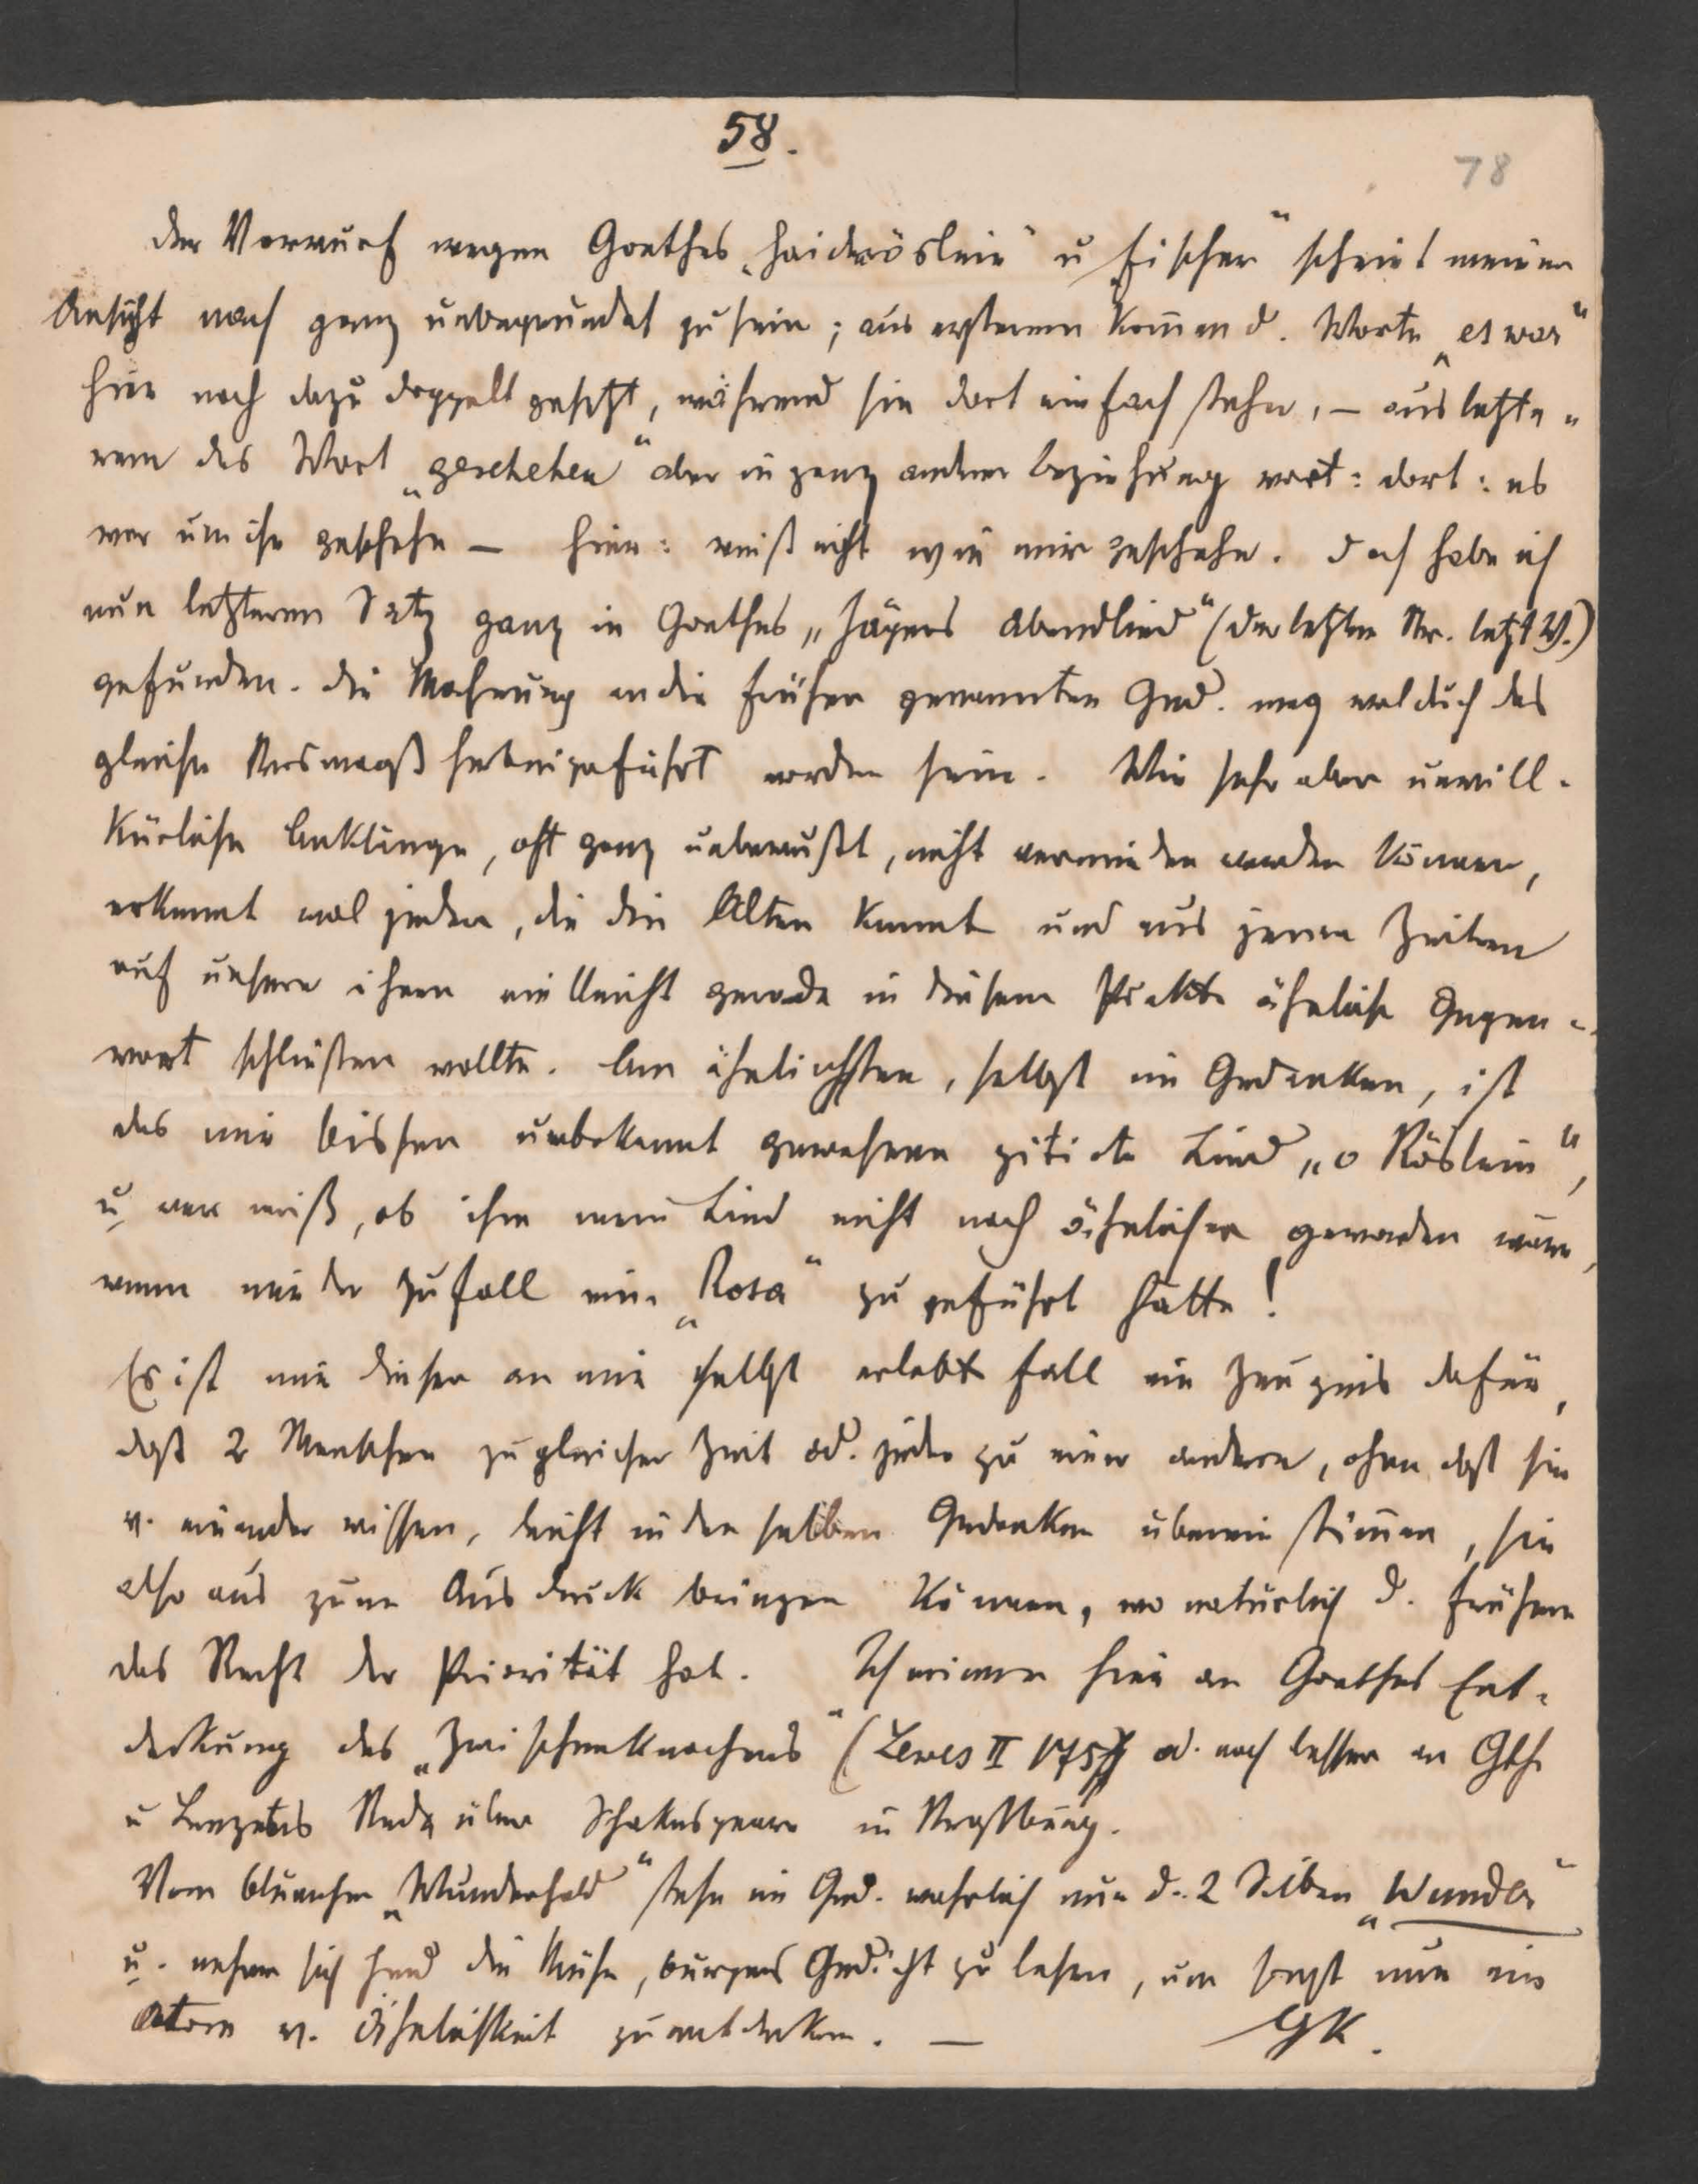 58.
78
Der Vorwurf wegen Goethes „Haideröslein“ u „Fischer“ scheint meiner
Ansicht nach ganz unbegründet zu sein; aus ersterem kom̄en d. Worte „es war“
hier noch dazu doppelt gesetzt, während sie dort einfach stehn, – aus letzte-
rem das Wort „geschehen“ aber in ganz andrer Beziehung vor: dort: es
war um ihn geschehn – hier: weiß nicht wie mir geschehn. Doch habe ich
nun letzteren Satz ganz in Goethes „Jägers Abendlied“ (der letzten Str. letzt V.)
gefunden. Die Mahnung an die früher genannten Ged. mag wol durch das
gleiche Versmaaß herbeigeführt worden sein. Wie sehr aber unwill-
kürliche Anklänge, oft ganz unbewußt, nicht vermieden werden können,
erkennt wol jeder, der die Alten kennt und aus jenen Zeiten
auf unsere ihnen vielleicht gerade in diesem Punkte ähnliche Gegen-
wart schließen wollte. Am ähnlichsten, selbst im Gedanken, ist
das mir bisher unbekannt gewesene zitirte Lied „o Röslein“,
u. wer weiß, ob ihm mein Lied nicht noch ähnlicher geworden wäre,
wenn mir der Zufall eine „Rosa“ zugeführt hätte!
Es ist mir dieser an mir selbst erlebte Fall ein Zeugnis dafür,
daß 2 Menschen zu gleicher Zeit od. jeder zu einer andern, ohne daß sie
v. einander wissen, leicht in den selben Gedanken übereinstim̄en, sie
also aus zum Ausdruck bringen können, wo natürlich d. frühere
das Recht der Priorität hat. Ich erinnere hier an Goethes Ent-
deckung des „Zwischenknochens“ (Lewes II 175) od. noch besser an Gths
u Lenzens Rede über Schakespeare in Straßburg.
Vom Blümchen „Wunderhold“ stehn im Ged. wahrlich nur d. 2 Silben „Wunder“
u. nehme sich Jemd die Mühe, Bürgers Gedicht zu lesen, um sonst nur ein
Atom v. Ähnlichkeit zu entdecken. –
GK.